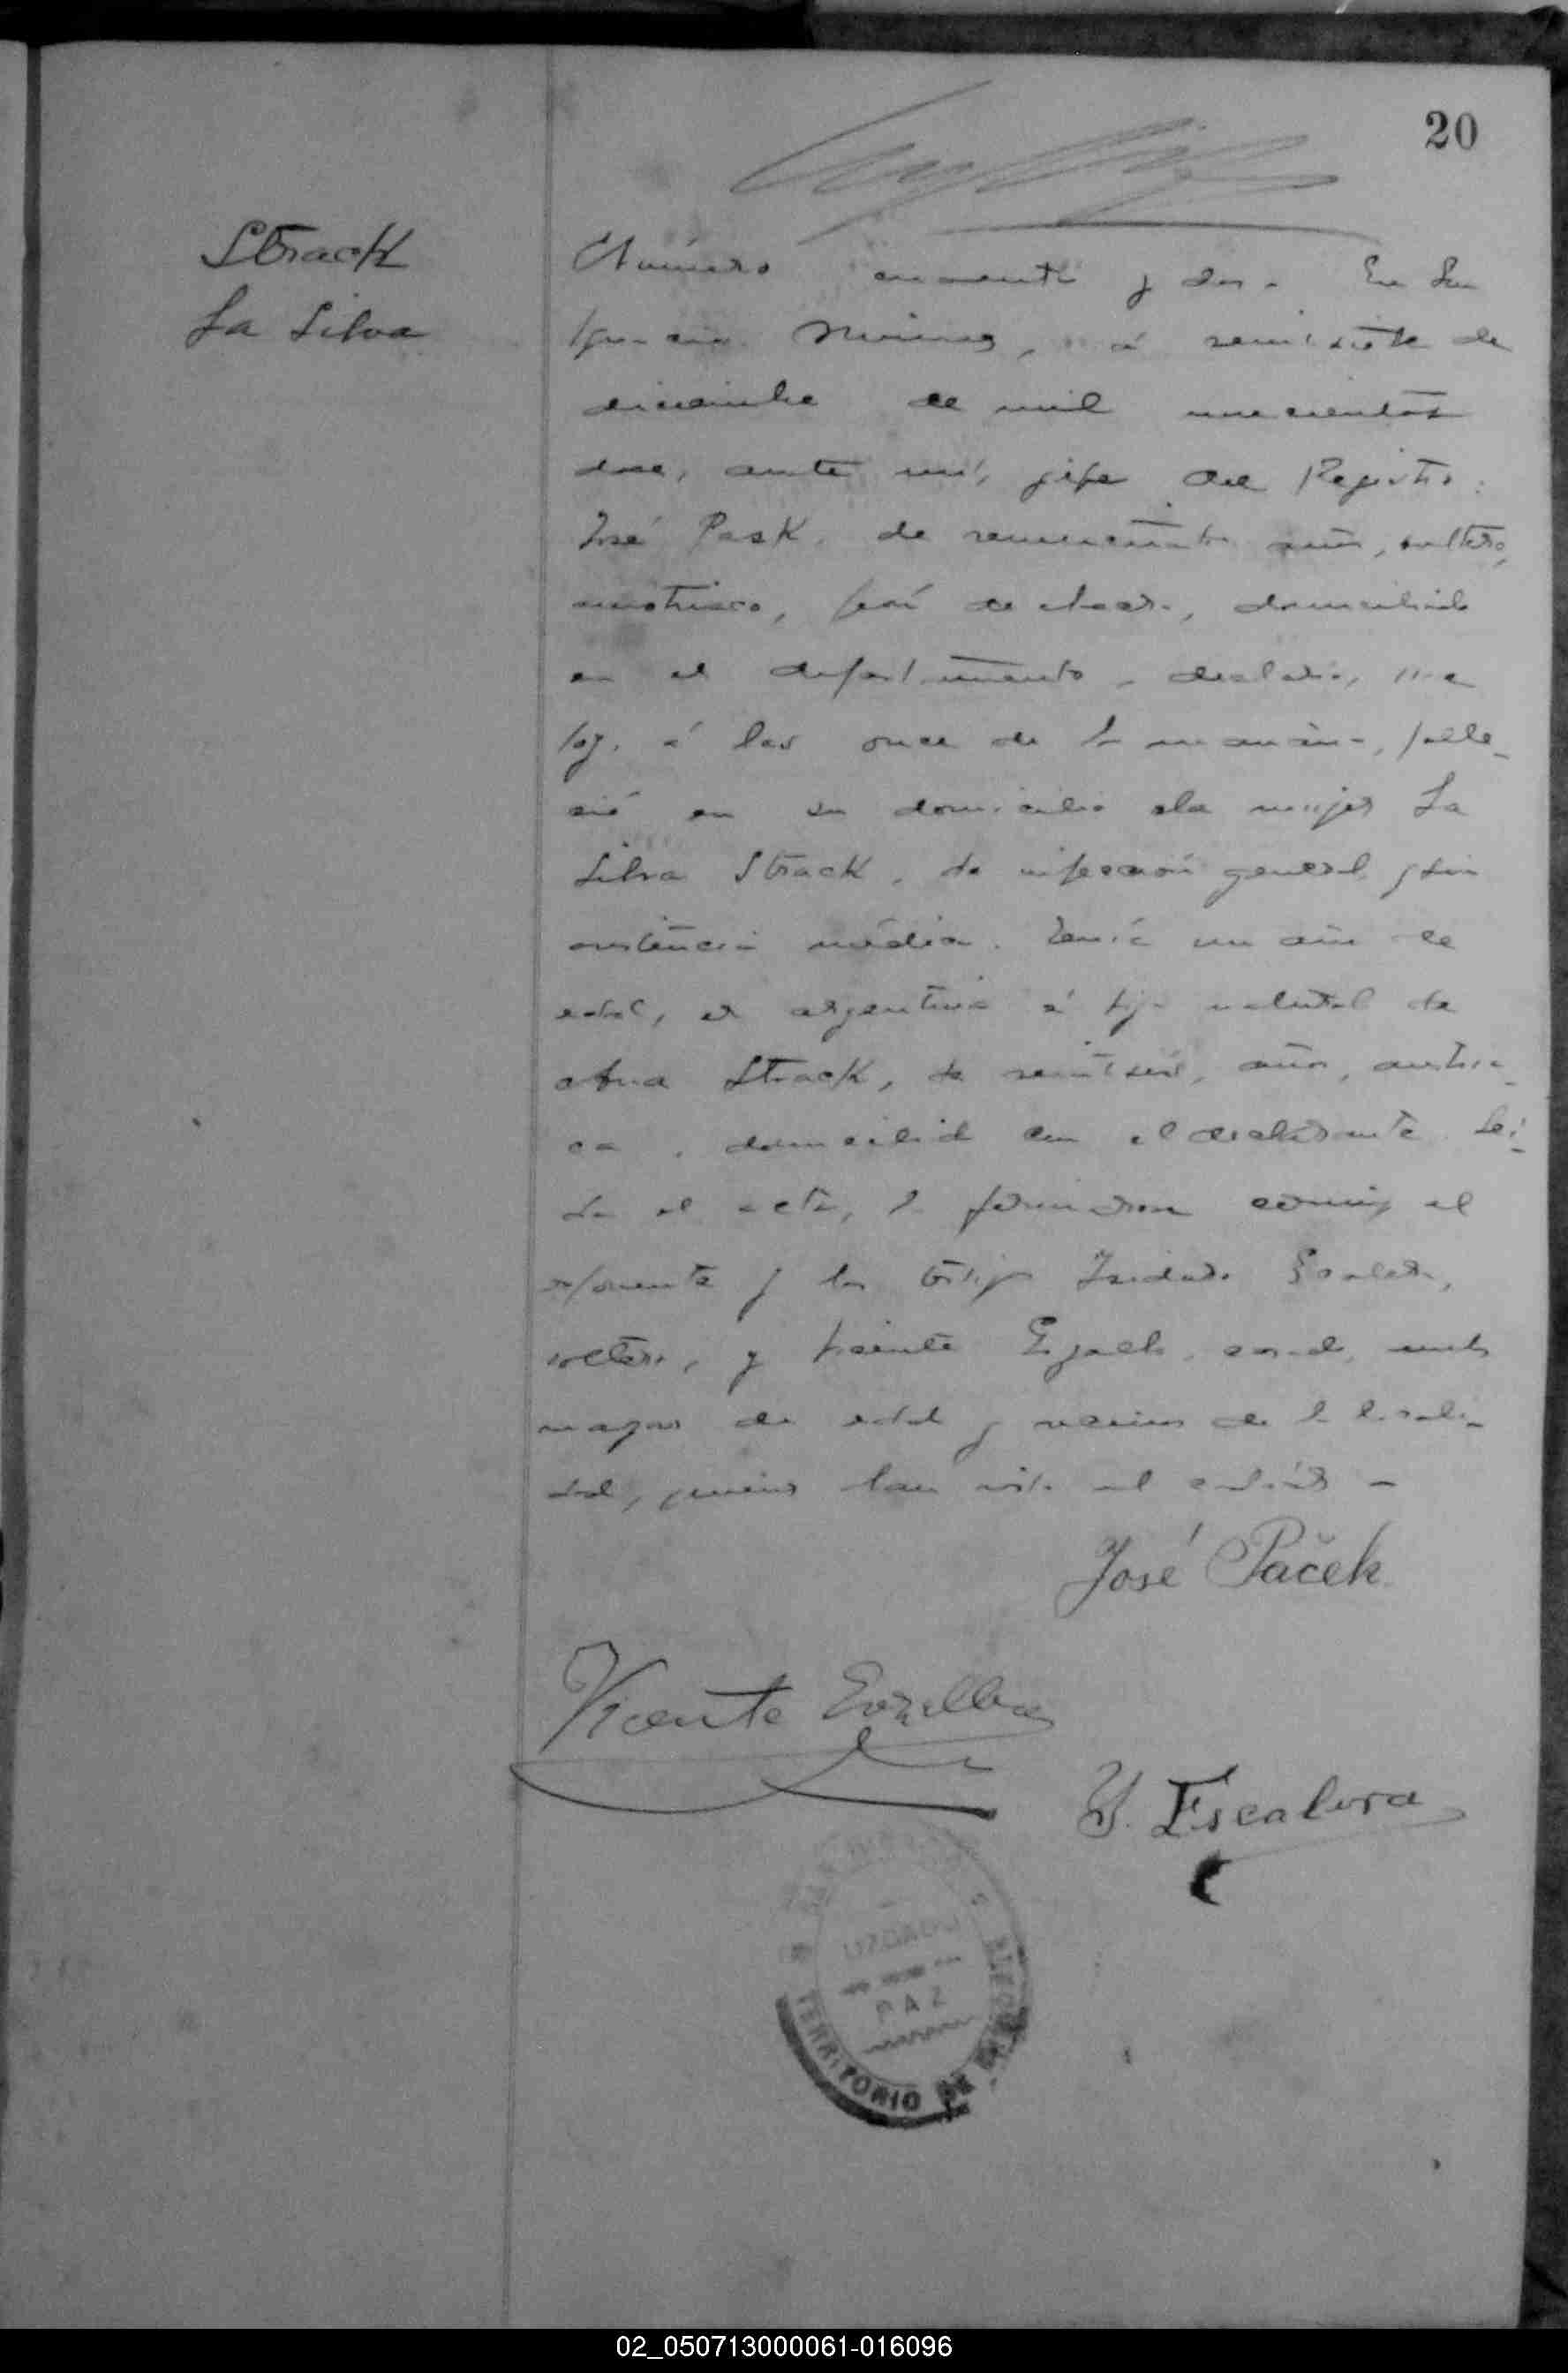 20
Strack
La Silva
Número cuarenta y dos. En San
Ignacio Misiones, á veintisiete de
diciembre de mil novecientos
doce, ante mí, jefe del Registro:
José Pask, de años, soltero,
austriaco, domiciliado
en el departamento, declaró, que
hoy, á las once de la mañana, falle-
ció en su domicilio la mujer La
Silva Strack, de infección general, sin
asistencia médica. Tenía un año de
edad, es argentina é hija natural de
Ana Strack, de veintiseis años, austria-
ca, domiciliada con el declarante. Leí-
da el acta, la firmaron conmigo el
exponente y los testigos Isidoro Escalera,
soltero, y Vicente casado, ambos
mayores de edad y vecinos de la locali-
dad, quienes han visto el cadáver –
José Paček
Vicente
Y. Escalera
JUZGADO
PAZ
TERRITORIO DE
02_050713000061-016096